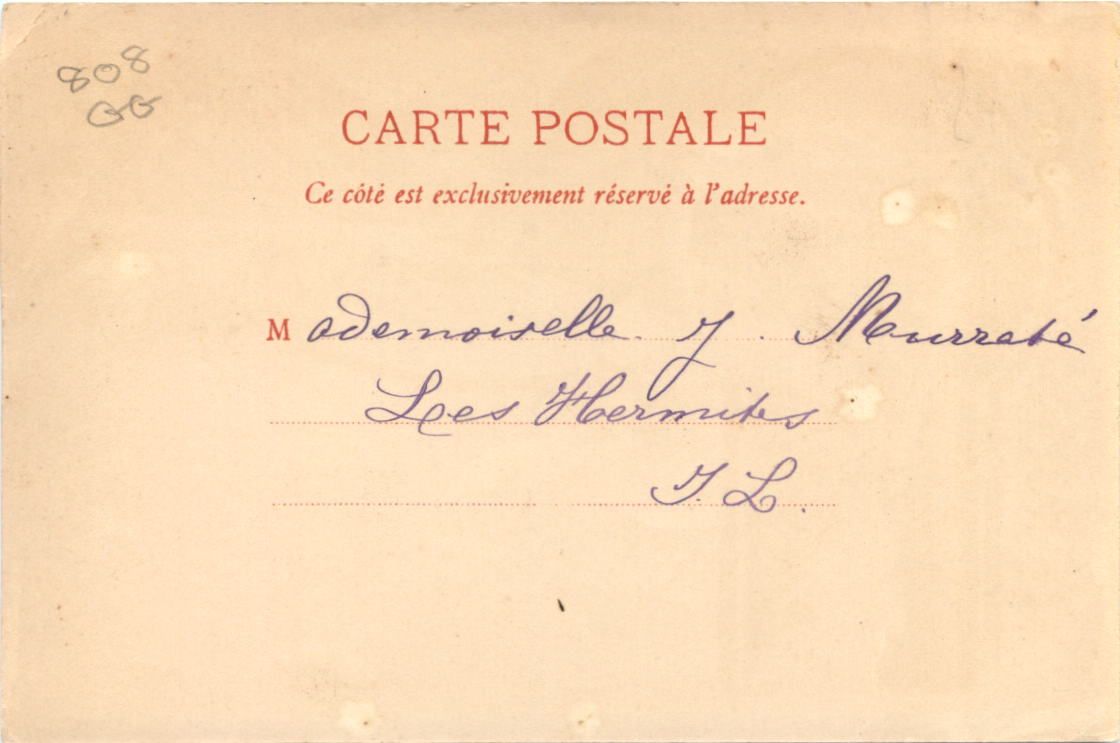 808
GG
CARTE POSTALE
Ce côté est exclusivement réservé à l'adresse.
Mademoiselle J. Mourraté
Les Hermites
I. L.